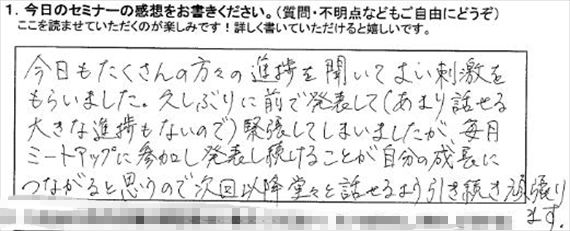 1. 今日のセミナーの感想をお書きください。（質問・不明点などもご自由にどうぞ）
ここを読ませていただくのが楽しみです！詳しく書いていただけると嬉しいです。
今日もたくさんの方々の進捗を聞いてよい刺激を
もらいました。久しぶりに前で発表して(あまり話せる
大きな進捗もないので)緊張してしまいましたが、毎月
ミートアップに参加し発表し続けることが自分の成長に
つながると思うので次回以降堂々と話せるよう引き続き頑張り
ます。